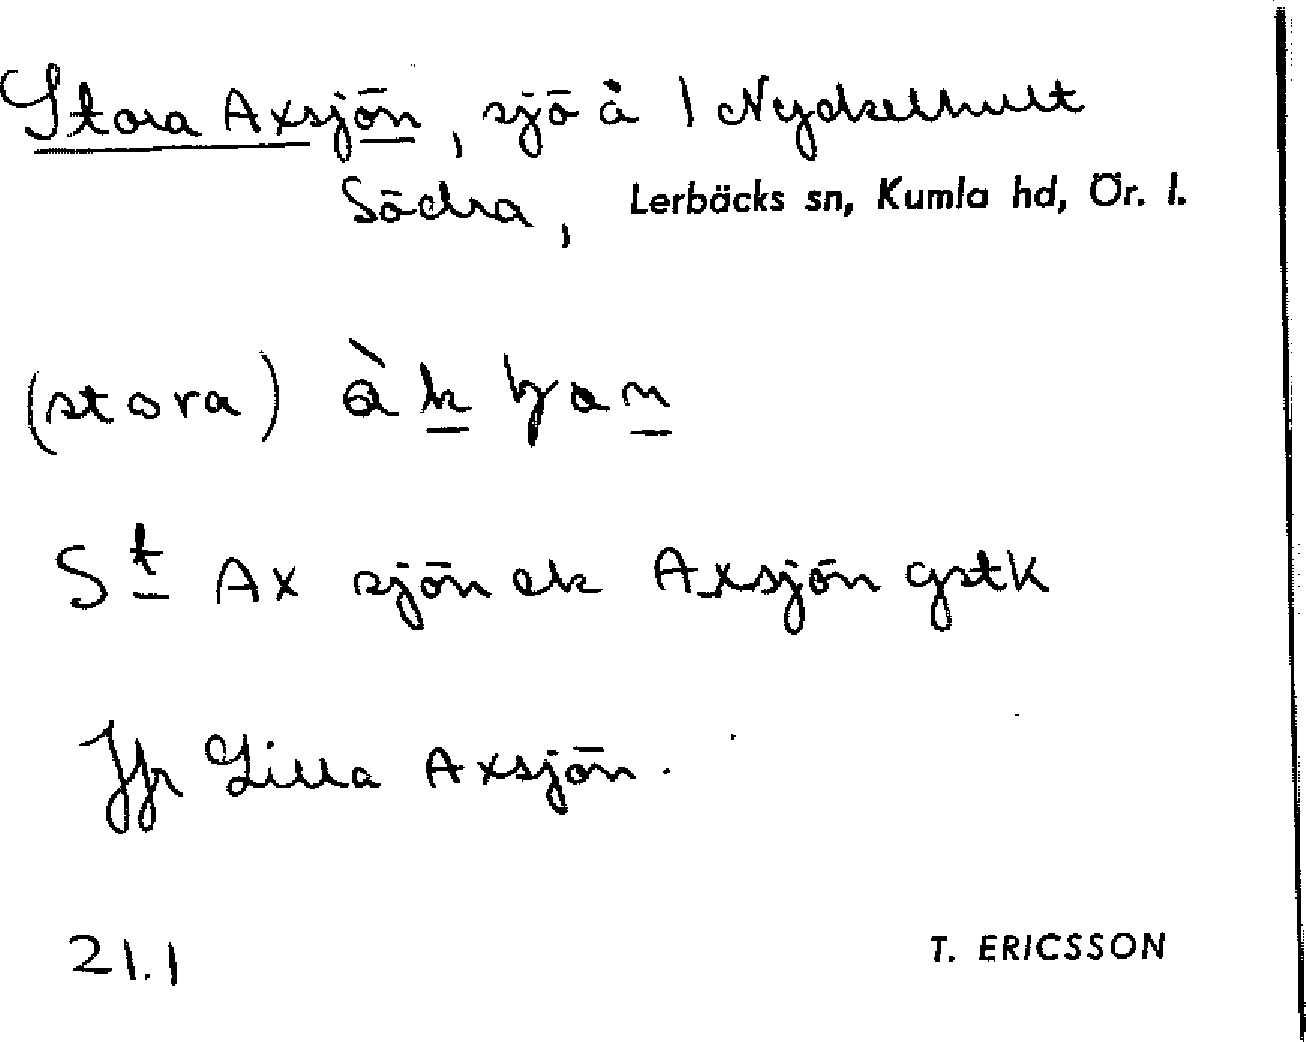 Stora Axsjön, sjö å 1 Nyckelhult
Södra, Lerbäcks sn, Kumla hd, Ör. l.
(stora)
St Ax sjön ek Axsjön gstk
Jfr Lilla Axsjön.
21.1
T. ERICSSON